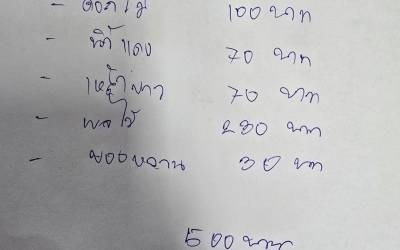 - ดอกไม้ 100 บาท
- น้ำแดง 70 บาท
- เหล้าขาว 70 บาท
- ผลไม้ 230 บาท
- ของหวาน 30 บาท
500 บาท